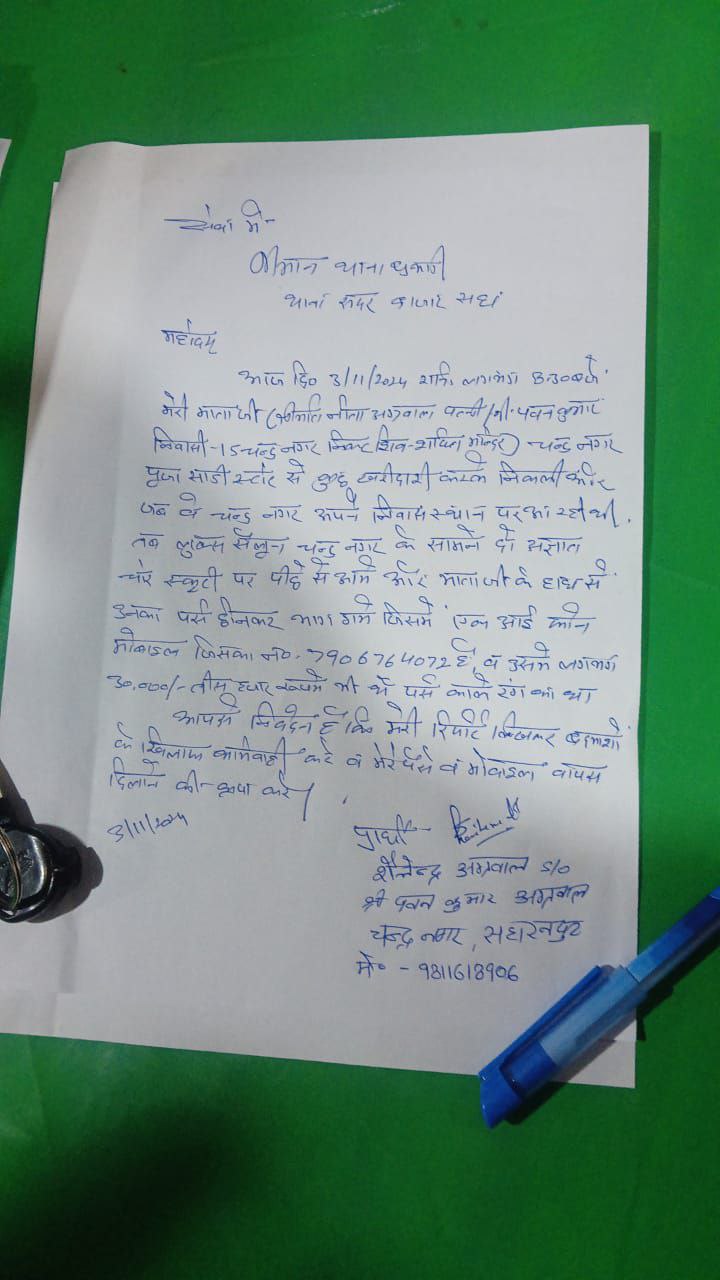 सेवा में-
श्रीमान थानाध्यक्ष
थाना सदर बाजार सहा
महोदय
आज दि० 3/11/2024 रात्रि लगभग 8:30 बजे
मेरी माता जी (श्रीमति नीता अग्रवाल पत्नी श्री पवन कुमार
निवासी-15 चन्द्र नगर निकट शिव-शक्ति मन्दिर) चन्द्र नगर
पूजा साडी स्टोर से कुछ खरीदारी करके निकली और
जब वे चन्द्र नगर अपने निवास स्थान पर आ रही थी,
तब लुक्स सैलून चन्द्र नगर के सामने दो अज्ञात
चोर स्कूटी पर पीछे से आये और माता जी के हाथ से
उनका पर्स छीनकर भाग गये जिसमें एक आई फोन
मोबाइल जिसका न०. 7906764072 है, व उसमें लगभग
30,000/- तीस हजार रूपये भी थे पर्स काले रंग का था
आपसे निवेदन है कि मेरी रिपोर्ट लिखकर बदमाशो
के खिलाफ कार्यवाही करे व मेरे पैसे व मोबाइल वापस
दिलाने की-कृपा करे।
3/11/2024
प्रार्थी-
शैलेन्द्र अग्रवाल S/O
श्री पवन कुमार अग्रवाल
चन्द्र नगर, सहारनपुर
मो० - 9811618906